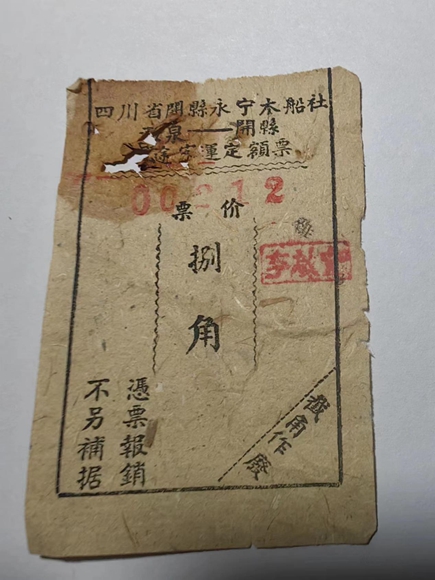 四川省開縣永宁木船社
泉——開縣
客運定額票
00212
票价
捌角
李啟
截角作廢
憑票報銷
不另補据